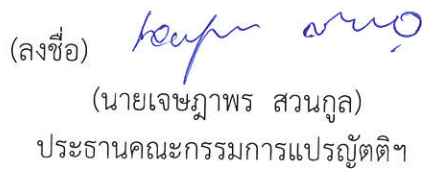 (ลงชื่อ)
(นายเจษฎาพร สวนกูล)
ประธานคณะกรรมการแปรญัตติฯ